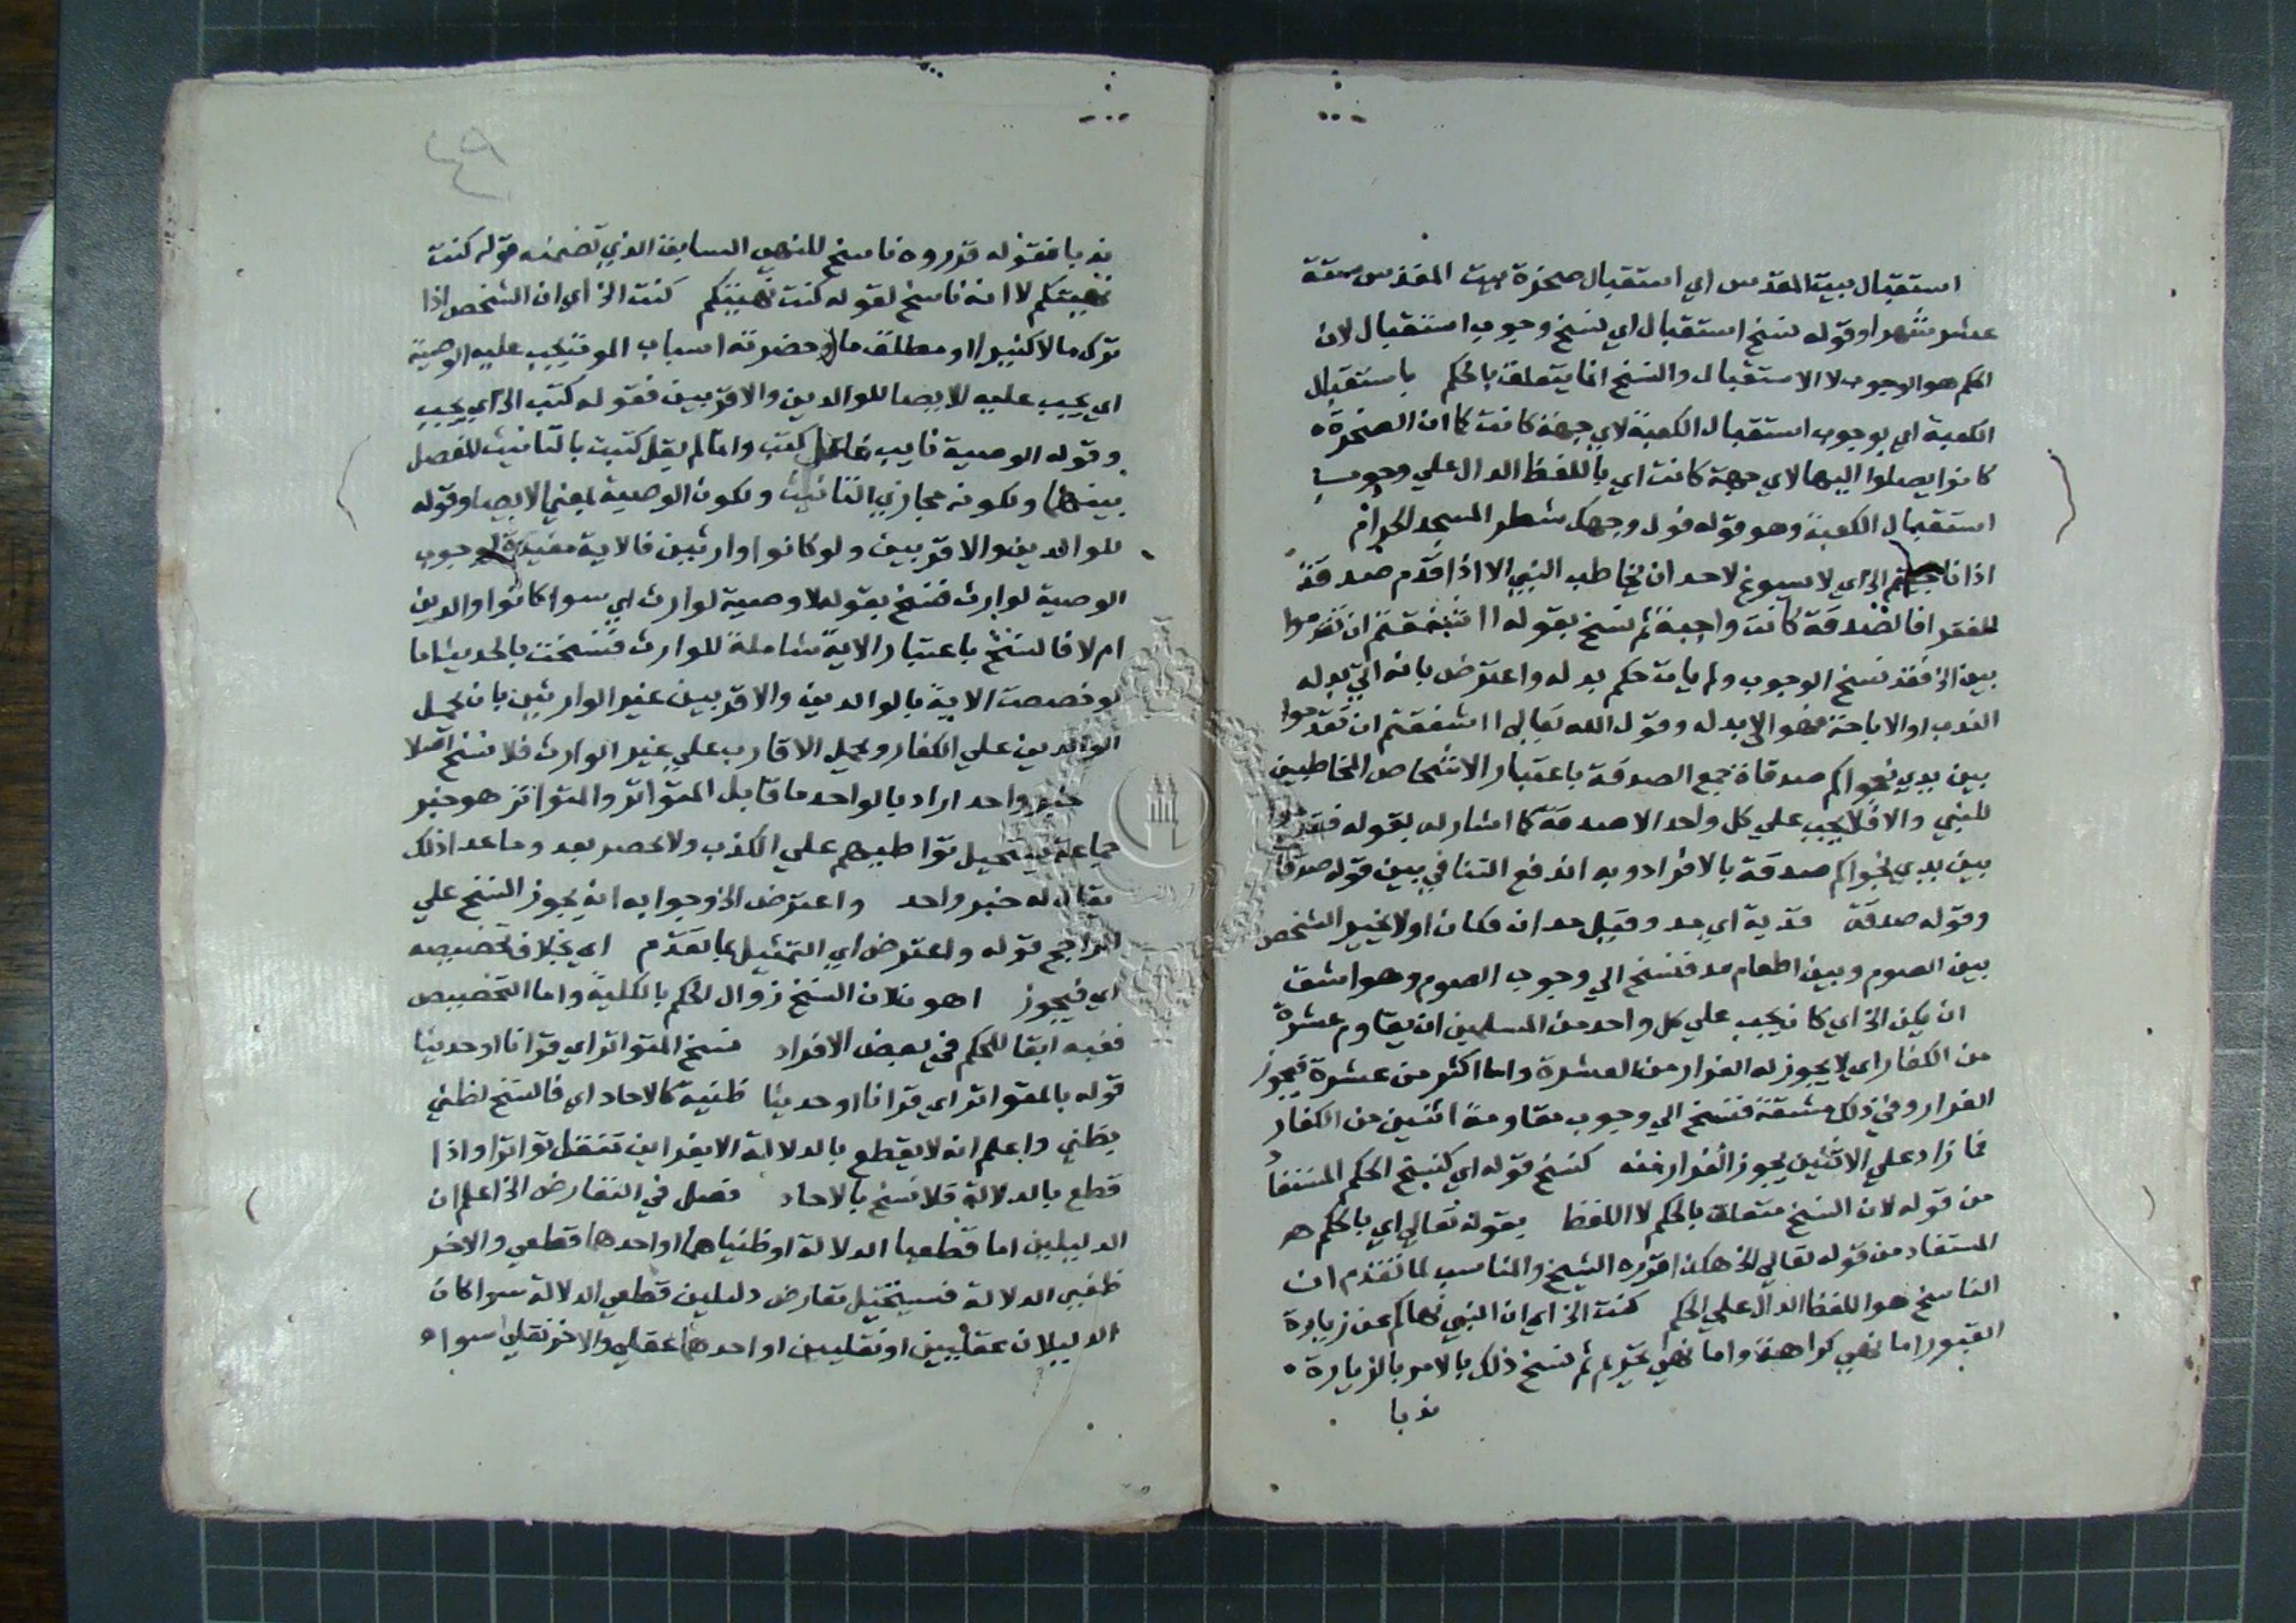 استقبال بيت المقدس اي استقبال صخرة بيت المقدس ستة
عشر شهرا وقوله نسخ استقبال اي نسخ وجوب استقبال لان
الحكم هو الوجوب لا الاستقبال والنسخ انما يتعلق بالحكم باستقبال
الكعبة اي بوجوب استقبال الكعبة لاي جهة كانت كما ان الصخرة
كانوا يصلوا اليها لاي جهة كانت اي باللفظ الدال علي وجوب
استقبال الكعبة وهو قوله فول وجهك شطر المسجد الحرام
اذا ناجيتم الخ اي لا يسوغ لاحد ان يخاطب النبي الا اذا قدم صدقة
للفقرا فالصدقة كانت واجبة ثم نسخ بقوله ااشفقتم ان تقدموا
بين الخ فقد نسخ الوجوب ولم يات حكم بدله واعترض بانه اتي بدله
الندب او الاباحة فهو الي بدله وقول الله تعالي ااشفقتم ان تقدموا
بين يدي نجواكم صدقاة جمع الصدقة باعتبار الاشخاص المخاطبين
للنبي والا فلا يجب علي كل واحد الا صدقة كما اشار له بقوله فقدموا
بين يدي نجواكم صدقة بالافراد وبه اندفع التنافي بين قوله صدقا
وقوله صدقة فدية اي مد وقيل مدان فكان اولا يخير الشخص
بين الصوم وبين اطعام مد فنسخ الي وجوب الصوم وهو اشق
ان يكن الخ اي كان يجب علي كل واحد من المسلمين ان يقاوم عشرة
من الكفار اي لا يجوز له الفرار من العشرة واما اكثر من عشرة فيجوز
الفرار وفي ذلك مشقة فنسخ الي وجوب مقاومة اثنين من الكفار
فما زاد علي الاثنين يجوز الفرار منه كنسخ قوله اي كنسخ الحكم المستفا
من قوله لان النسخ متعلق بالحكم لا اللفظ بقوله تعالي اي بالحكم هـ
المستفاد من قوله تعالي الخ هكذا قرره الشيخ والمناسب لما تقدم ان
الناسخ هو اللفظ الدال علي الحكم كنت الخ اي ان النبي نهاكم عن زيارة
القبور اما نهي كراهة واما نهي تحريم ثم نسخ ذلك بالامر بالزيارة
ندبا
٤٩
ندبا فقوله فزوروه ناسخ للنهي السابق الذي تضمنه قوله كنت
نهيتكم لا انه ناسخ لقوله كنت نهيتكم كنت الخ اي ان الشخص اذا
ترك مالا كثيرا او مطلق مال وحضرته اسباب الموت يجب عليه الوصية
اي يجب عليه الايصا للوالدين والاقربين فقوله كتب الخ اي يجب
وقوله الوصية نايب فاعل كتب وانما لم يقل كتبت بالتانيث للفصل
بينهما ولكونه مجازي التانيث ولكون الوصية بمعني الايصا وقوله
للوالدين والاقربين ولو كانوا وارثين فالاية مفيدة لوجوب
الوصية لوارث فنسخ بقوله لا وصية لوارث اي سوا كانوا والدين
ام لا فالنسخ باعتبار الاية شاملة للوارث فنسخت بالحديث اما
لو خصصت الاية بالوالدين والاقربين غير الوارثين بان يحمل
الوالدين علي الكفار ويحمل الاقارب علي غير الوارث فلا نسخ اصلا
خبر واحد اراد بالواحد ما قابل المتواتر والمتواتر هو خبر
جماعة يستحيل تواطيهم علي الكذب ولا حصر بعد وما عدا ذلك
يقال له خبر واحد واعترض الخ وجوابه انه يجوز النسخ علي
الراجح قوله واعترض اي التمثيل بما تقدم اي بخلاف تخصيصه
اي فيجوز اهو فلان النسخ زوال الحكم بالكلية واما التخصيص
ففيه ابقا للحكم في بعض الافراد نسخ المتواتر اي قرانا او حديثا
قوله بالمتواتر اي قرانا او حديثا ظنية كالاحاد اي فالنسخ لظني
بظني واعلم انه لا يقطع بالدلالة الا بقراين تنقل تواترا واذا
قطع بالدلالة فلا نسخ بالاحاد فصل في التعارض الخ اعلم ان
الدليلين اما قطعيا الدلالة او ظنياهما او احدهما قطعي والاخر
ظني الدلالة فيستحيل تعارض دليلين قطعي الدلالة سوا كان
الدليلان عقليين او نقليين او احدهما عقلي والاخر نقلي سوا